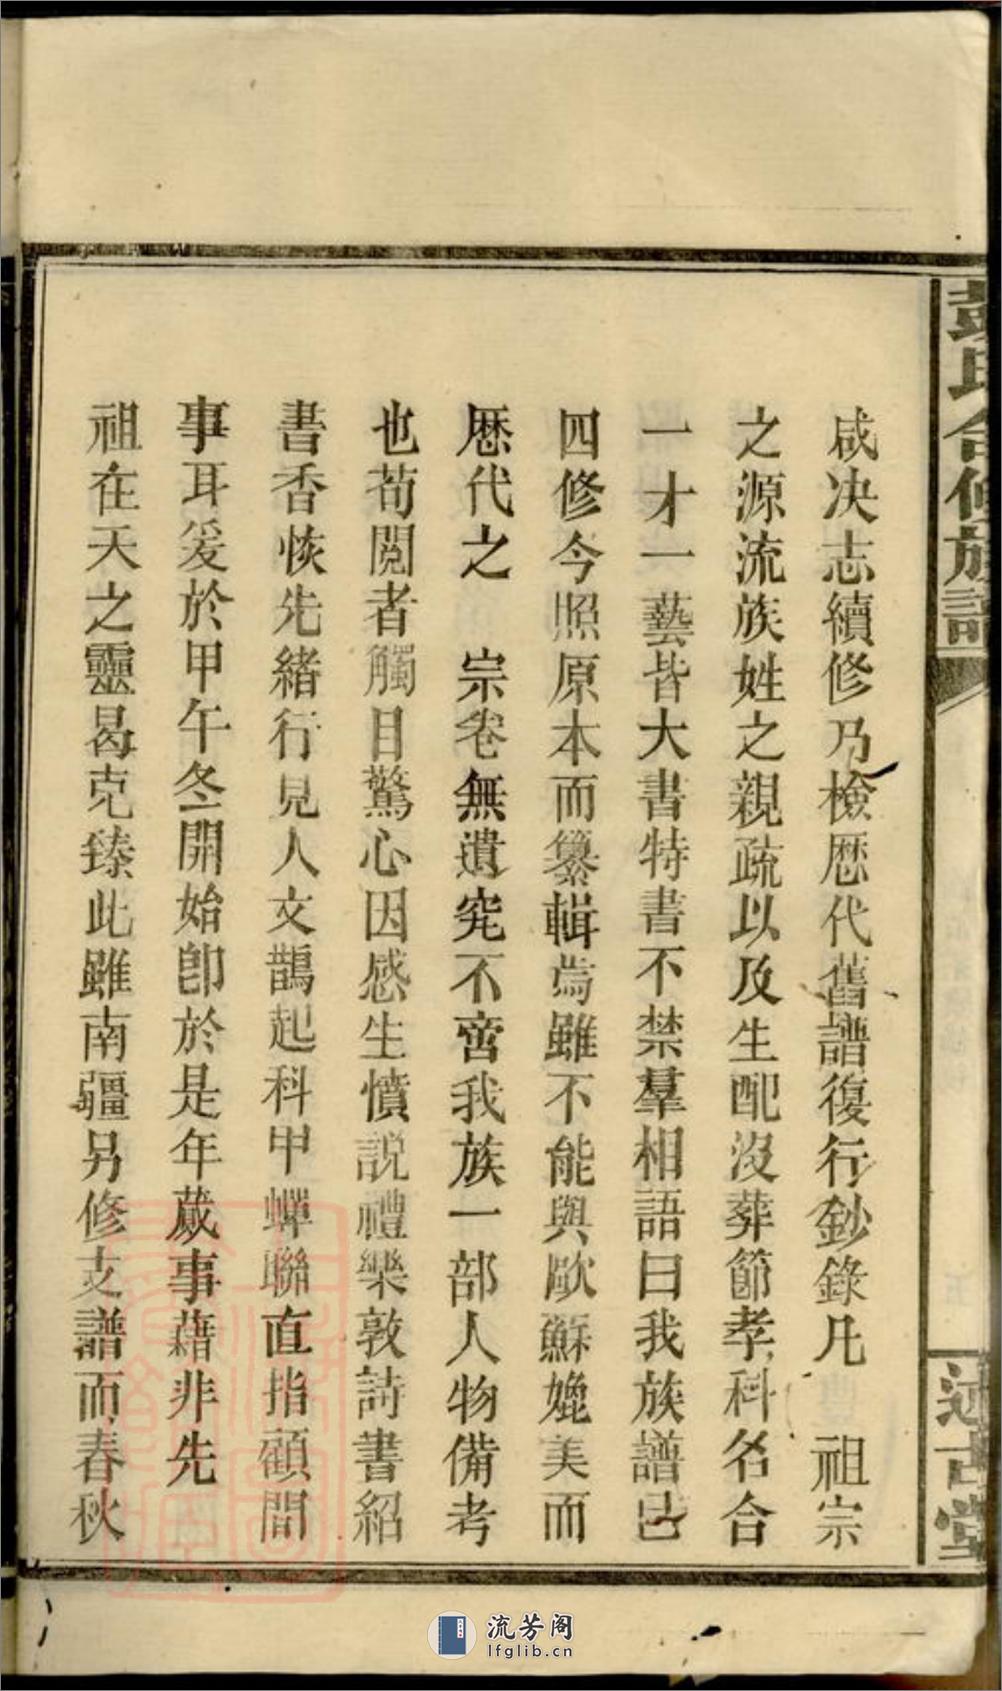 彭氏合修族譜
述古堂
咸决志續修乃檢歷代舊譜復行鈔錄凡　祖宗
之源流族姓之親疏以及生配沒葬節孝科名合
一才一藝皆大書特書不禁羣相語曰我族譜已
四修今照原本而纂輯焉雖不能與歐蘇媲美而
歷代之　宗卷無遺究不啻我族一部人物備考
也苟閱者觸目驚心因感生憤說禮樂敦詩書紹
書香恢先緒行見人文鵲起科甲蟬聯直指顧間
事耳爰於甲午冬開始卽於是年蕆事藉非先
祖在天之靈曷克臻此雖南疆另修支譜而春秋
流芳阁
lfglib.cn